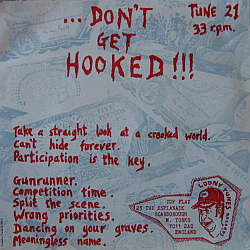 ...DON'T
GET
HOOKED!!!
TUNE 21
33 r.p.m.
Take a straight look at a crooked world.
Can't hide forever.
Participation is the key.
Gunrunner.
Competition time.
Split the scene.
Wrong priorities.
Dancing on your graves.
Meaningless name.
LOONY TUNES RECORDS
TOP FLAT
25 THE ESPLANADE
SCARBOROUGH
N. YORKS
YO11 2AQ
ENGLAND